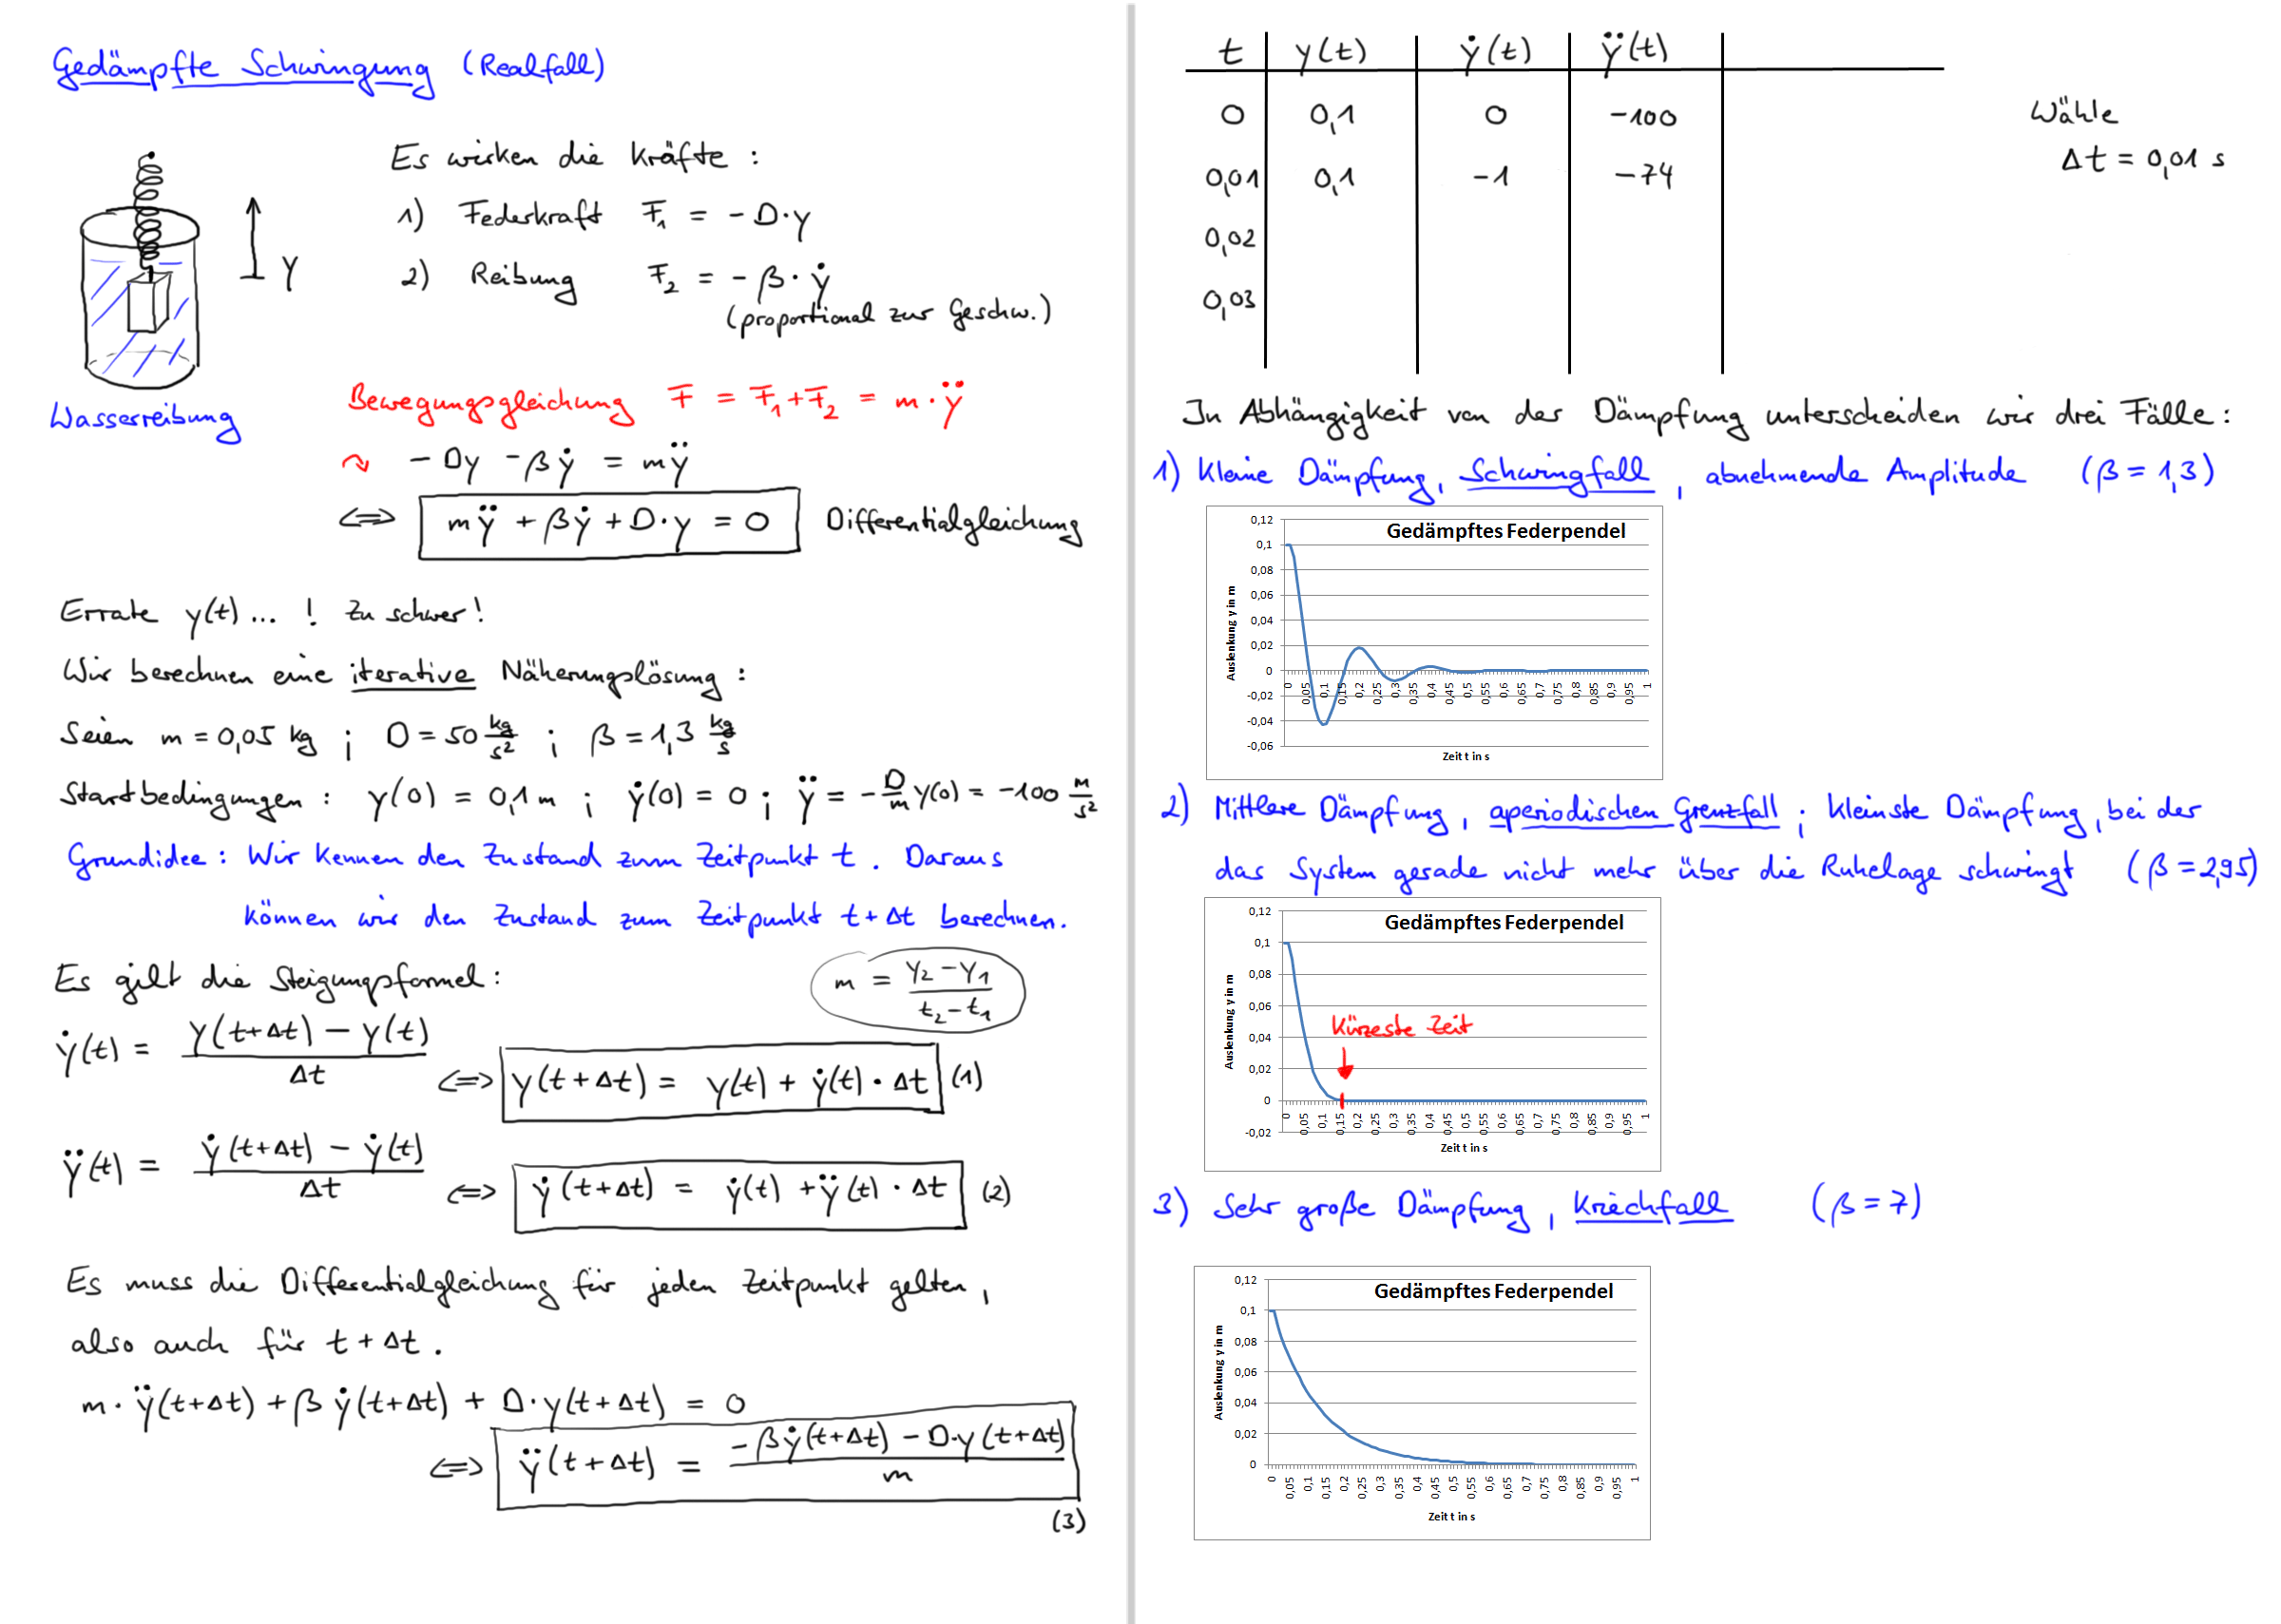 Gedämpfte Schwingung (Realfall)
Es wirken die Kräfte :
1) Federkraft F₁ = - D·y
2) Reibung F₂ = - β·ẏ
(proportional zur Geschw.)
y
Wasserreibung
Bewegungsgleichung F = F₁+F₂ = m·ÿ
↷ - Dy - βẏ = mÿ
⇔ mÿ + βẏ + D·y = 0 Differentialgleichung
Errate y(t) ... ! Zu schwer!
Wir berechnen eine iterative Näherungslösung :
Seien m = 0,05 kg ; D = 50 kg/s² ; β = 1,3 kg/s
Startbedingungen : y(0) = 0,1 m ; ẏ(0) = 0 ; ÿ = - D/m y(0) = -100 m/s²
Grundidee : Wir kennen den Zustand zum Zeitpunkt t . Daraus
können wir den Zustand zum Zeitpunkt t + Δt berechnen.
Es gilt die Steigungsformel :
m = (y₂ - y₁)/(t₂ - t₁)
ẏ(t) = (y(t+Δt) - y(t))/Δt ⇔ y(t+Δt) = y(t) + ẏ(t) · Δt (1)
ÿ(t) = (ẏ(t+Δt) - ẏ(t))/Δt ⇔ ẏ(t+Δt) = ẏ(t) + ÿ(t) · Δt (2)
Es muss die Differentialgleichung für jeden Zeitpunkt gelten ,
also auch für t + Δt .
m · ÿ(t+Δt) + β ẏ(t+Δt) + D·y(t+Δt) = 0
⇔ ÿ(t+Δt) = (-βẏ(t+Δt) - D·y(t+Δt))/m
(3)
t y(t) ẏ(t) ÿ(t)
0 0,1 0 -100
0,01 0,1 -1 -74
0,02
0,03
Wähle
Δt = 0,01 s
In Abhängigkeit von der Dämpfung unterscheiden wir drei Fälle :
1) Kleine Dämpfung, Schwingfall , abnehmende Amplitude (β = 1,3)
Gedämpftes Federpendel
0,12
0,1
0,08
0,06
0,04
0,02
0
-0,02
-0,04
-0,06
Auslenkung y in m
0 0,05 0,1 0,15 0,2 0,25 0,3 0,35 0,4 0,45 0,5 0,55 0,6 0,65 0,7 0,75 0,8 0,85 0,9 0,95 1
Zeit t in s
2) Mittlere Dämpfung , aperiodischen Grenzfall ; kleinste Dämpfung, bei der
das System gerade nicht mehr über die Ruhelage schwingt (β = 2,95)
Gedämpftes Federpendel
0,12
0,1
0,08
0,06
0,04
0,02
0
-0,02
Auslenkung y in m
Kürzeste Zeit
0 0,05 0,1 0,15 0,2 0,25 0,3 0,35 0,4 0,45 0,5 0,55 0,6 0,65 0,7 0,75 0,8 0,85 0,9 0,95 1
Zeit t in s
3) Sehr große Dämpfung , Kriechfall (β = 7)
Gedämpftes Federpendel
0,12
0,1
0,08
0,06
0,04
0,02
0
Auslenkung y in m
0 0,05 0,1 0,15 0,2 0,25 0,3 0,35 0,4 0,45 0,5 0,55 0,6 0,65 0,7 0,75 0,8 0,85 0,9 0,95 1
Zeit t in s